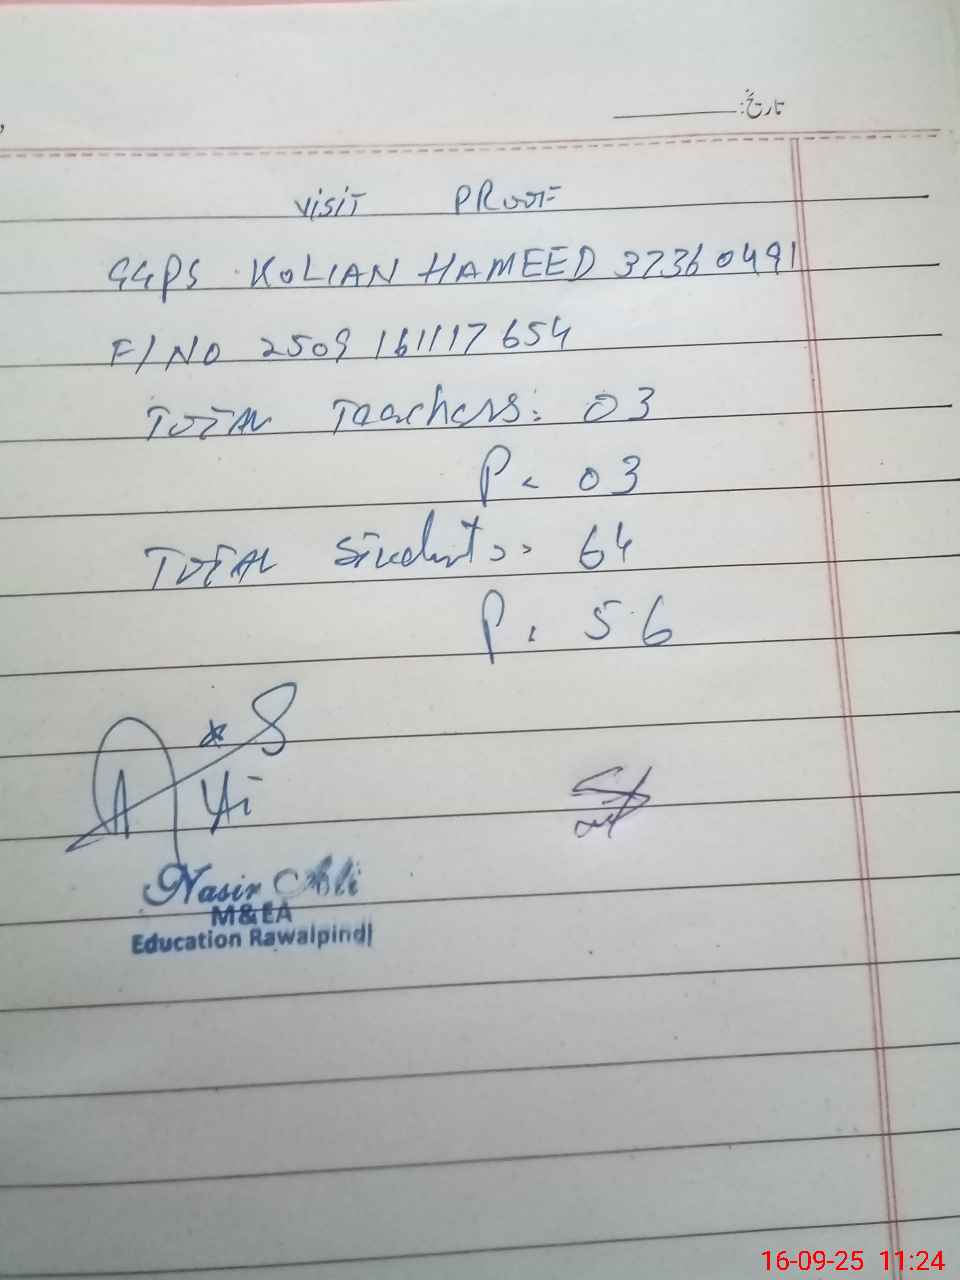 تاریخ:
VISIT PROOF
GGPS KOLIAN HAMEED 37360491
F/NO 2509161117654
TOTAL Teachers: 03
P. 03
TOTAL Students: 64
P. 56
Nasir Ali
M&EA
Education Rawalpindi
16-09-25 11:24